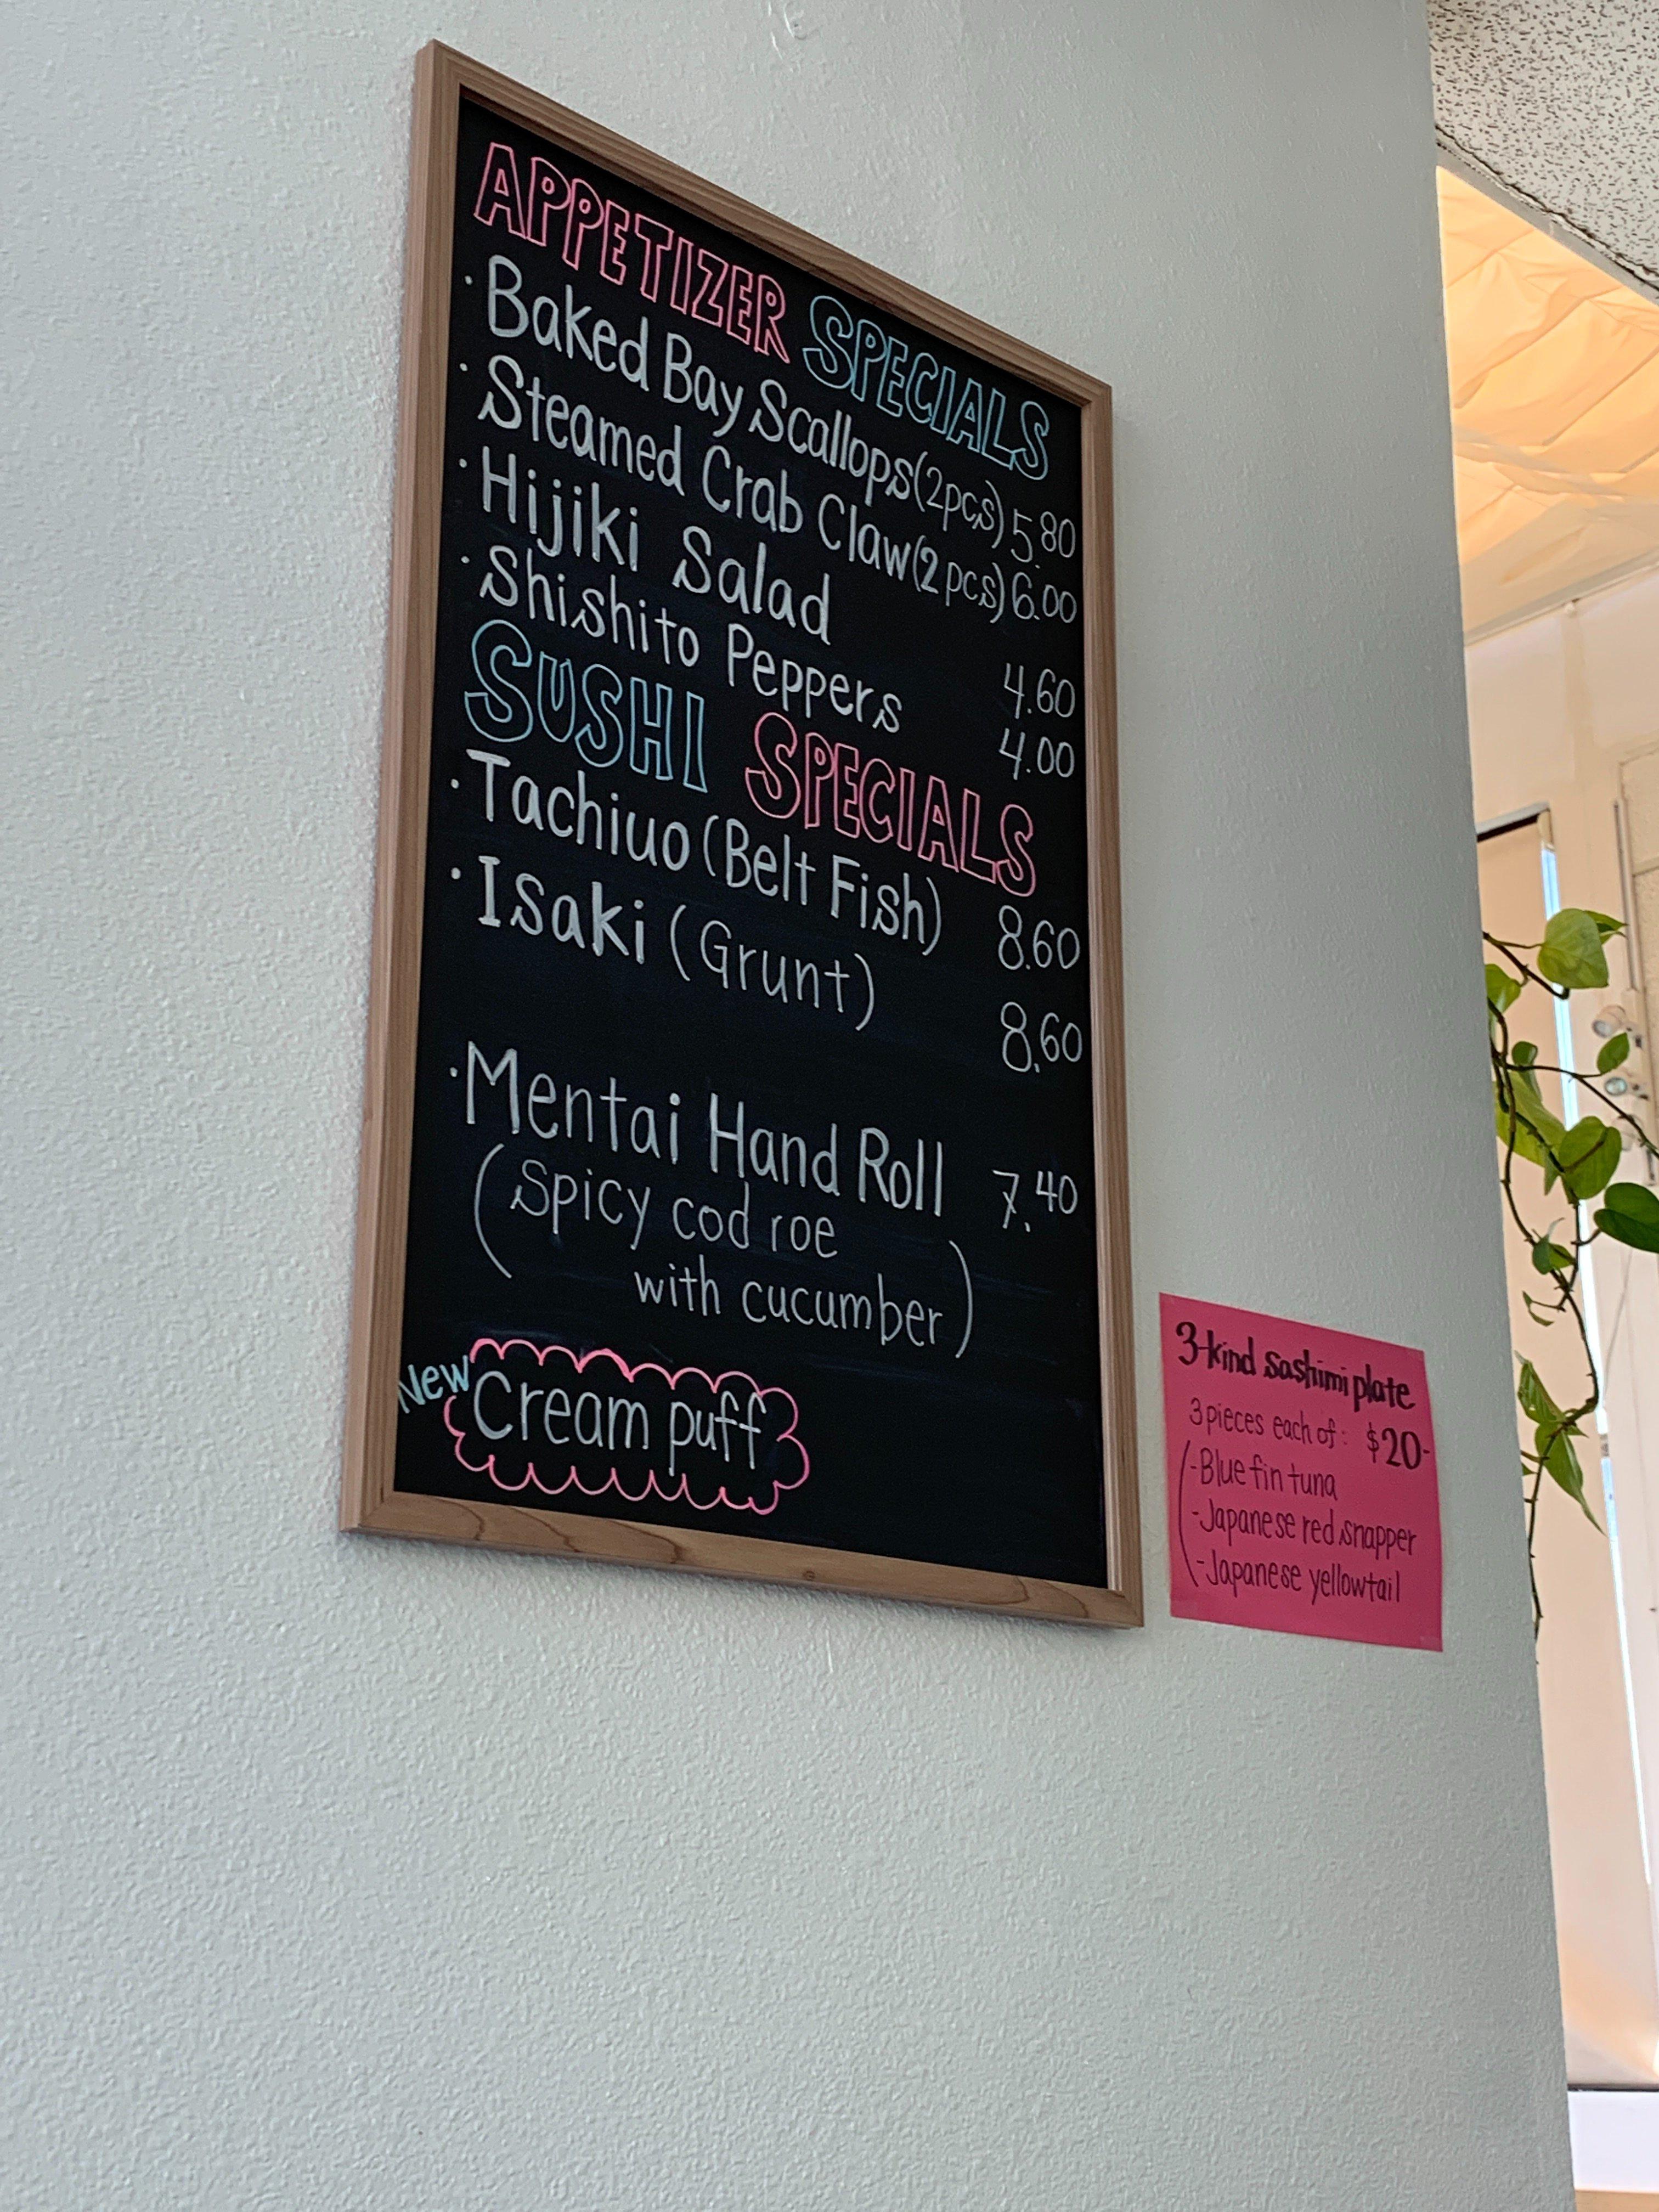 APPETIZER SPECIALS
· Baked Bay Scallops (2pcs) 5.80
· Steamed Crab Claw (2pcs) 6.00
· Hijiki Salad 4.60
· Shishito Peppers 4.00
SUSHI SPECIALS
· Tachiuo (Belt Fish) 8.60
· Isaki (Grunt) 8.60
· Mentai Hand Roll 7.40
(Spicy cod roe
with cucumber)
New Cream puff
3-kind sashimi plate
3 pieces each of: $20-
- Blue fin tuna
- Japanese red snapper
- Japanese yellowtail